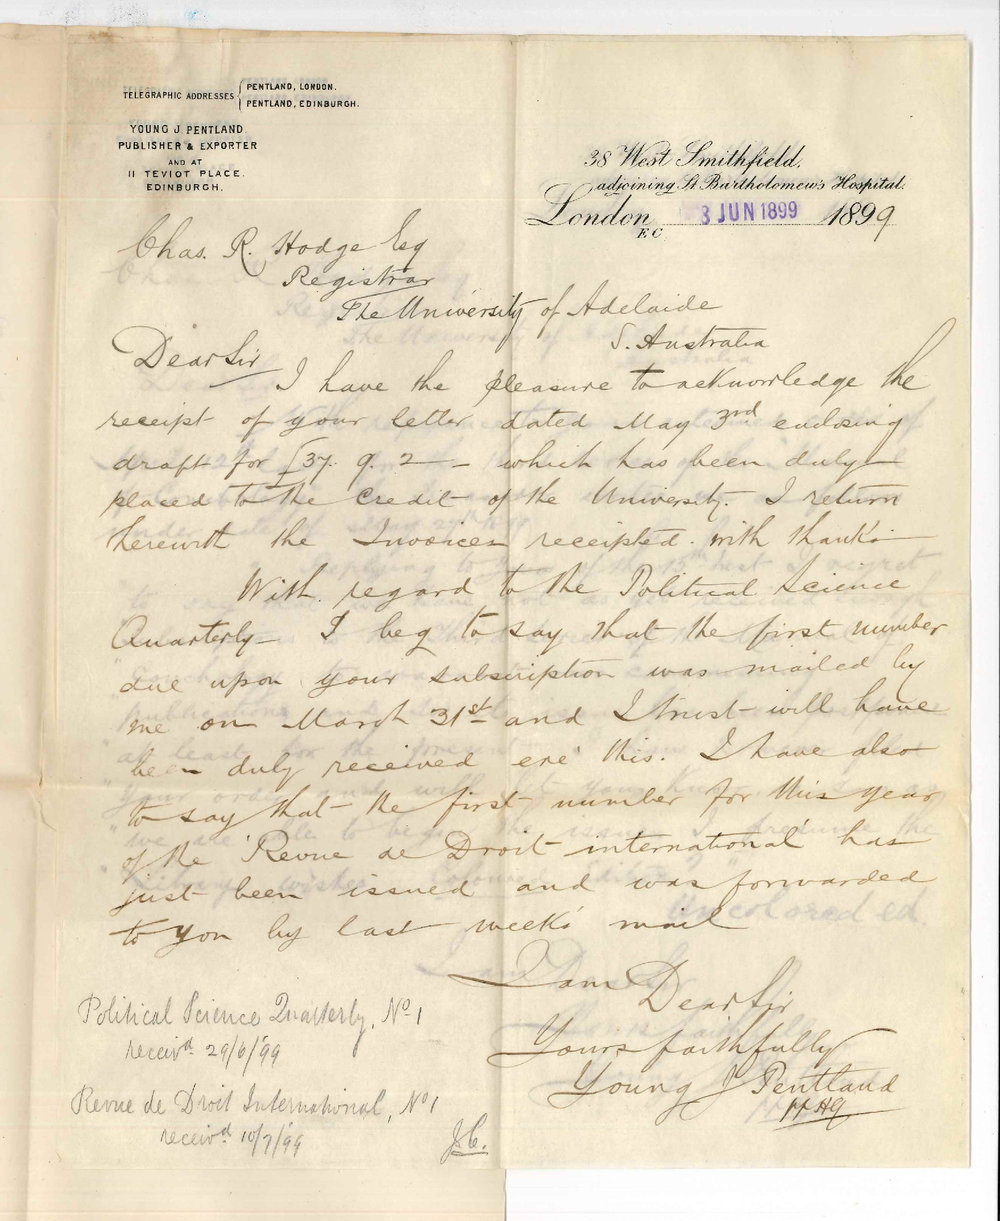 TELEGRAPHIC ADDRESSES { PENTLAND, LONDON.
PENTLAND, EDINBURGH.
YOUNG J. PENTLAND
PUBLISHER & EXPORTER
AND AT
11 TEVIOT PLACE.
EDINBURGH.
38 West Smithfield,
adjoining St Bartholomew's Hospital.
London E C 3 JUN 1899 1899
Chas. R. Hodge Esq
Registrar
The University of Adelaide
S. Australia
Dear Sir
I have the pleasure to acknowledge the
receipt of your letter dated May 3rd enclosing
draft for £37. 9. 2 — which has been duly
placed to the credit of the University. I return
herewith the Invoices receipted with thanks
With regard to the Political Science
Quarterly— I beg to say that the first number
due upon your subscription was mailed by
me on March 31st and I trust will have
been duly received ere this. I have also
to say that the first number for this year
of the 'Revue de Droit international' has
just been issued and was forwarded
to you by last week's mail
I am Dear Sir
Yours faithfully
Young J Pentland
Political Science Quarterly, No 1
receivd 29/6/99
Revue de Droit International, No 1
receivd 10/7/99
uncolored ed